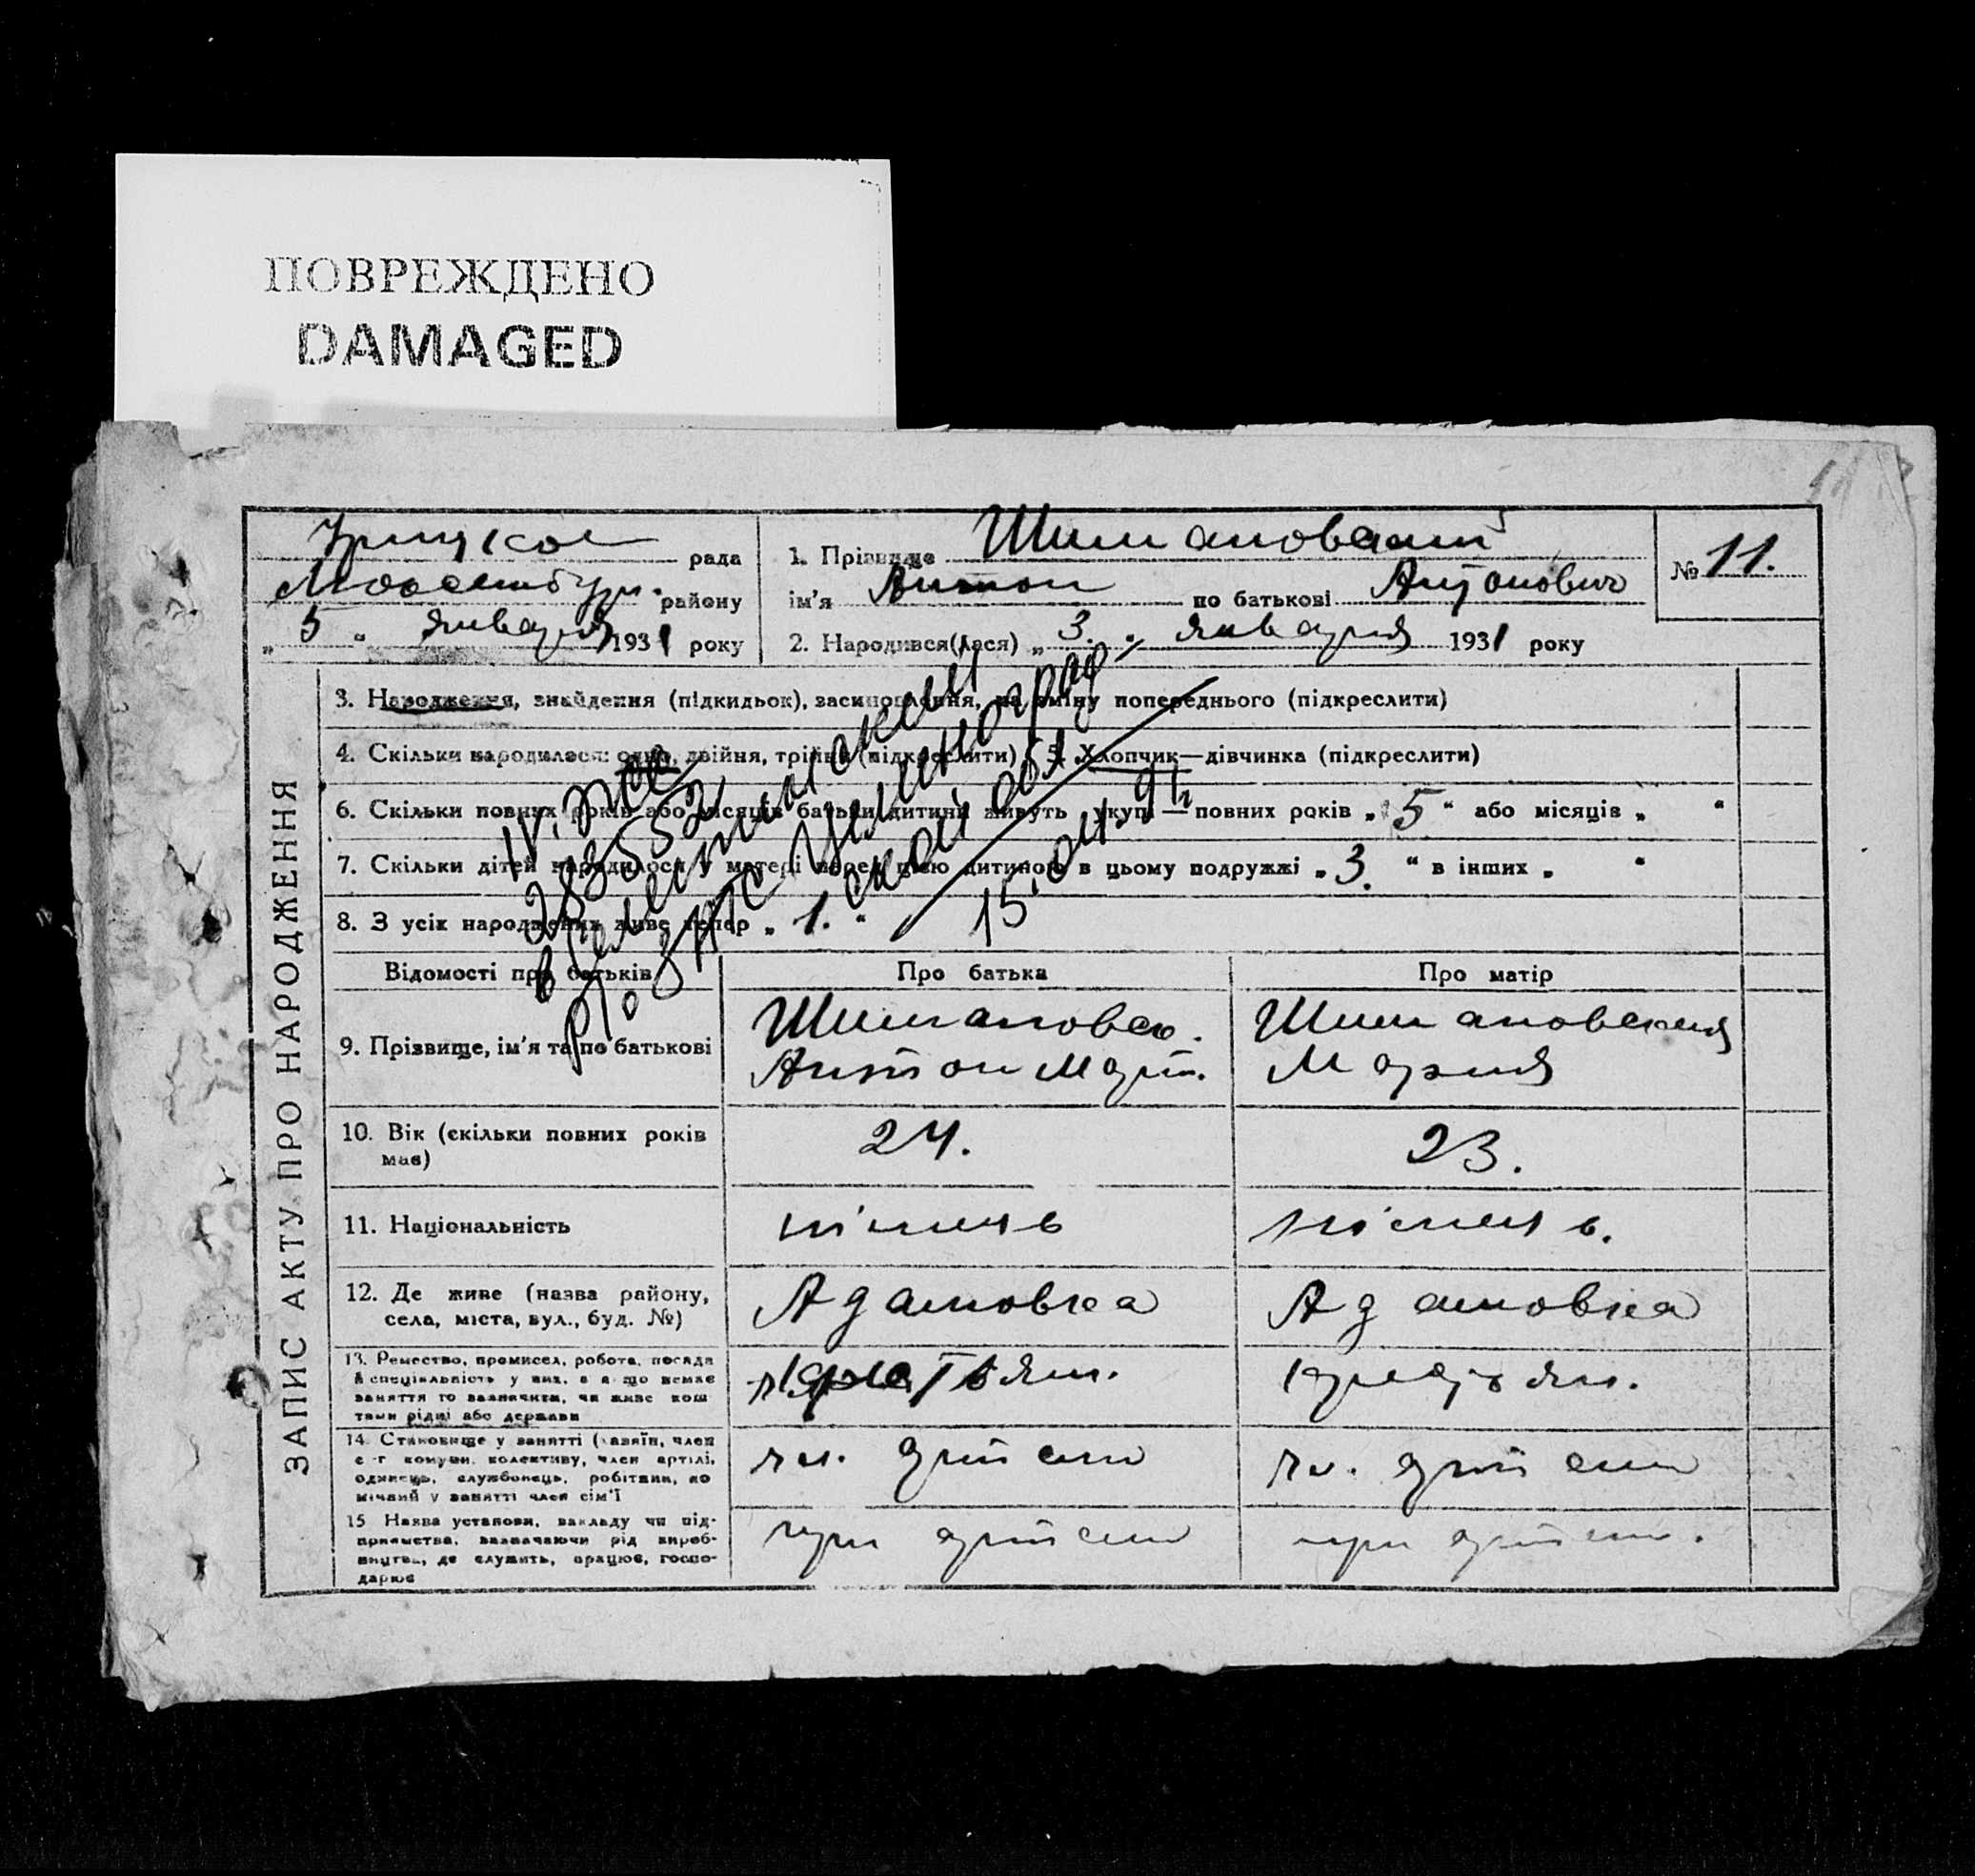 ПОВРЕЖДЕНО
DAMAGED
рада
району
„ 5 “ января 1931 року
1. Прізвище Шимановский
ім'я Антон по батькові Антонович
№ 11.
2. Народився(лася) „ 3. „ января 1931 року
3. Народження, знайдення (підкидьок), засиновлення, на зміну попереднього (підкреслити)
4. Скільки народилася: одно, двійня, трійня (підкреслити) 5. Хлопчик—дівчинка (підкреслити)
6. Скільки повних років або місяців батьки дитини живуть укупі — повних років „ 5 “ або місяців „ “
7. Скільки дітей народилося у матері перед цією дитиною в цьому подружжі „ 3. “ в інших „ “
8. З усіх народжених живе тепер „ 1. “
Відомості про батьків
Про батька
Про матір
9. Прізвище, ім'я та по батькові
Шимановск.
Антон Март.
Шимановская
Мария
10. Вік (скільки повних років має)
24.
23.
11. Національність
німець
німець.
12. Де живе (назва району, села, міста, вул., буд. №)
Адамовка
Адамовка
13. Ремество, промисел, робота, посада й спеціальність у них, а якщо немає заняття то зазначити, чи живе коштами рідні або держави
крестьян.
14. Становище у занятті (хазяїн, член с-г комуни, колективу, член артілі, одинець, службовець, робітник, помічний у занятті член сім'ї
чл. артели
чл. артели
15 Назва установи, закладу чи підприємства, зазначаючи рід виробництва, де служить, працює, господарює
при артели
при артели.
ЗАПИС АКТУ ПРО НАРОДЖЕННЯ